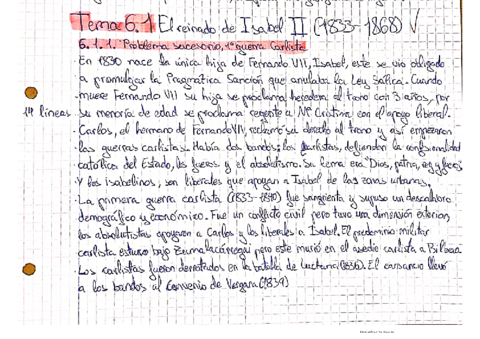 Tema 6.1 El reinado de Isabel II (1833-1868) √
6.1.1. Problema sucesorio, 1ª guerra Carlista
En 1830 nace la única hija de Fernando VII, Isabel, este se vio obligado
a promulgar la Pragmática Sanción que anulaba la Ley Sálica. Cuando
muere Fernando VII su hija se proclama heredera al trono con 3 años, por
14 líneas su menoría de edad se proclama regente a Mª Cristina con el apoyo liberal.
Carlos, el hermano de Fernando VII, reclamó su derecho al trono y así empezaron
las guerras carlistas. Había dos bandos; los carlistas, defienden la confesionalidad
católica del Estado, los fueros, y el absolutismo. Su lema era "Dios, patria, rey y fueros"
Y los isabelinos, son liberales que apoyan a Isabel de las zonas urbanas.
La primera guerra carlista (1833-1840) fue sangrienta y supuso un descalabro
demográfico y económico. Fue un conflicto civil pero tuvo una dimensión exterior,
los absolutistas apoyaron a Carlos y los liberales a Isabel. El predominio militar
carlista estuvo bajo Zumalacárregui pero este murió en el asedio carlista a Bilbao.
Los carlistas fueron derrotados en la batalla de Luchana (1836). El cansancio llevó
a los bandos al Convenio de Vergara (1839)